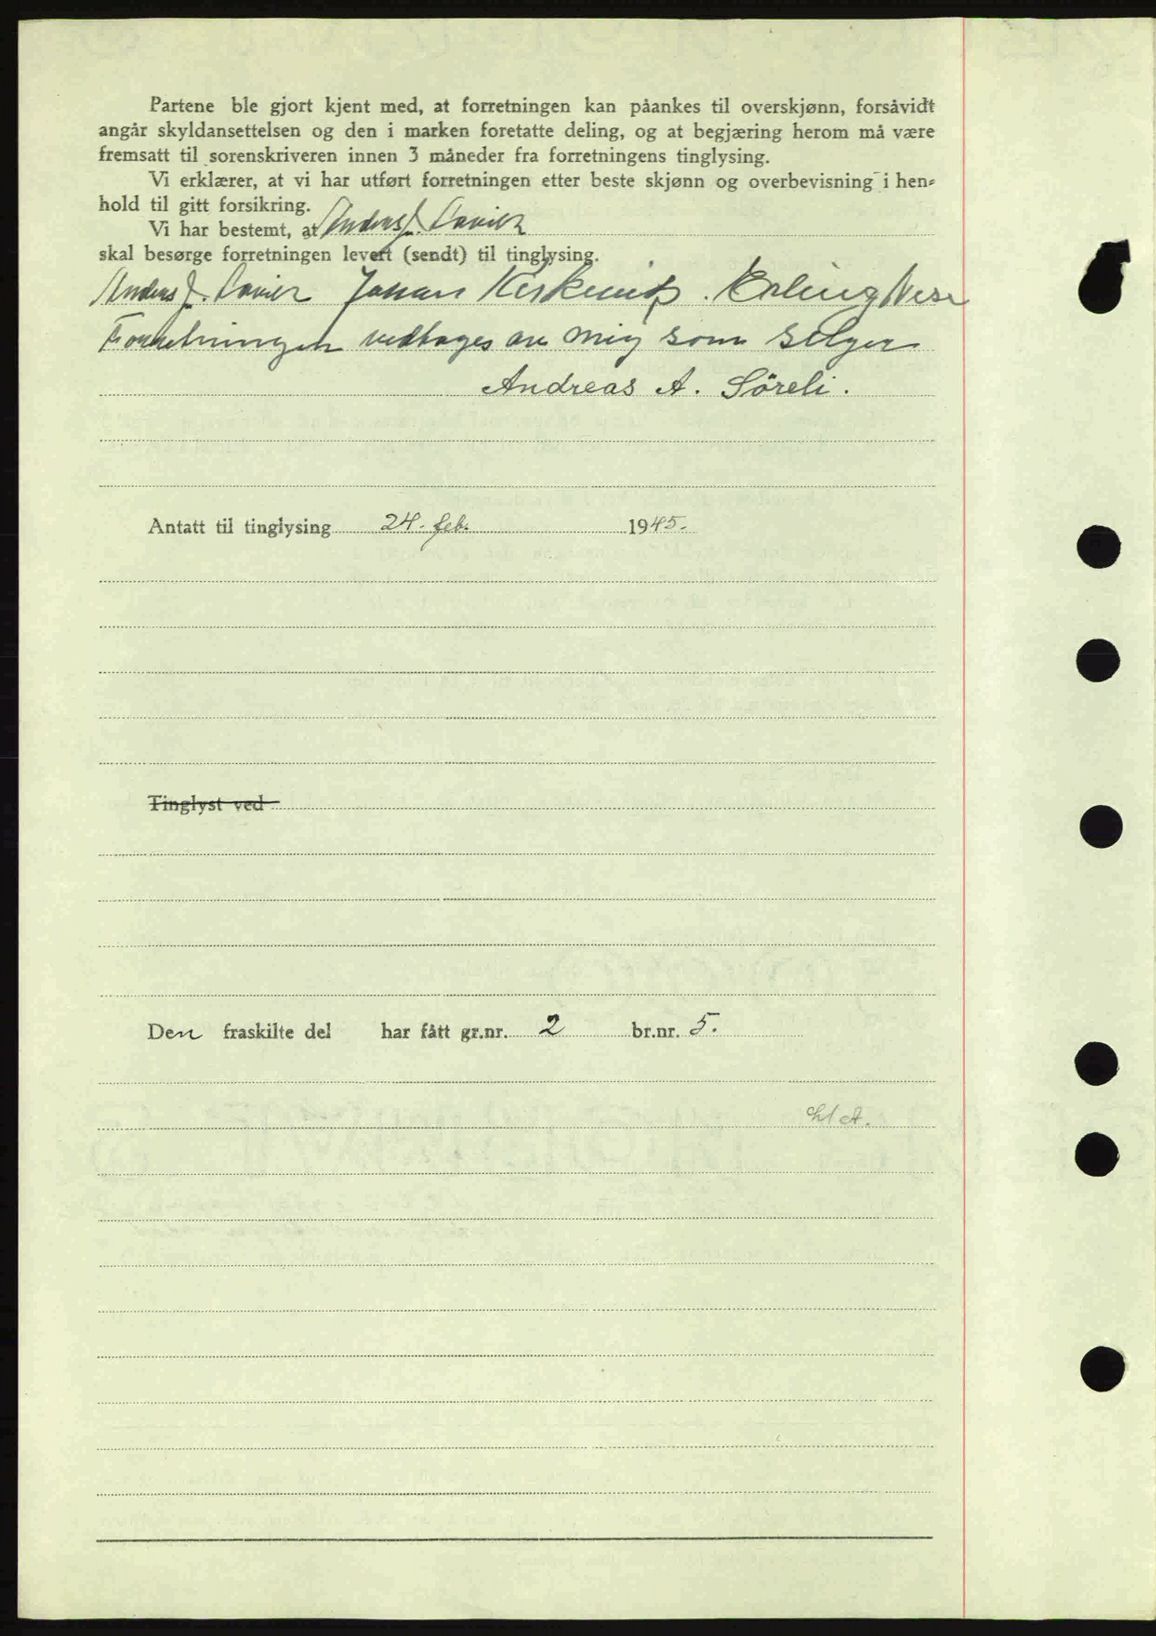 Partene ble gjort kjent med, at forretningen kan påankes til overskjønn, forsåvidt
angår skyldansettelsen og den i marken foretatte deling, og at begjæring herom må være
fremsatt til sorenskriveren innen 3 måneder fra forretningens tinglysing.
Vi erklærer, at vi har utført forretningen etter beste skjønn og overbevisning i hen-
hold til gitt forsikring.
Vi har bestemt, at Anders J.
skal besørge forretningen levert (sendt) til tinglysing.
Anders J. Johan Erling
Forretningen vedtages av mig som selger
Andreas A. Söreli.
Antatt til tinglysing 24. feb. 1945.
Tinglyst ved
Den fraskilte del har fått gr.nr. 2 br.nr. 5.